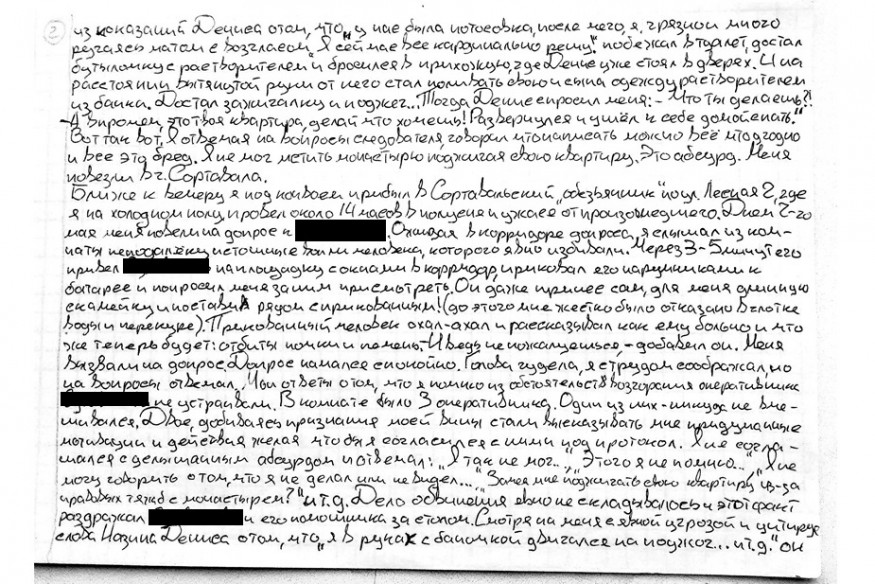 2
из показаний Дениса о том, что „у нас была потосовка, после чего, я, грязно и много
ругаясь матом с возгласом „Я сейчас всё кардинально решу!" побежал в туалет, достал
бутылочку с растворителем и бросился в прихожую, где Денис уже стоял в дверях. И на
расстоянии вытянутой руки от него стал поливать свою и сына одежду растворителем
из банки. Достал зажигалку и поджег... Тогда Денис спросил меня: - Что ты делаешь?!
- А впрочем, это твоя квартира, делай что хочешь! Развернулся и ушёл к себе домой спать."
Вот так вот. Я отвечая на вопросы следователя, говорил что написать можно всё что угодно
и все это бред. Я не мог мстить монастырю поджигая свою квартиру. Это абсурд. Меня
повезли в г. Сортавала.
Ближе к вечеру я под конвоем прибыл в Сортавальский „обезьянник" по ул. Лесная 2, где
я на холодном полу, провел около 14 часов в полусне и ужасе от произошедшего. Днем 2-го
мая меня повели на допрос к . Ожидая в корридоре допроса, я слышал из ком-
наты неподалёку истошные вопли человека, которого явно избивали. Через 3-5 минут его
привел на площадку с окнами в корридор, приковал его наручниками к
батарее и попросил меня за ним присмотреть. Он даже принес сам, для меня длинную
скамейку и поставил рядом с прикованным! (до этого мне жестко было отказано в глотке
воды и перекуре). Прикованный человек охал-ахал и рассказывал как ему больно и что
же теперь будет: отбиты почки и печень. - И ведь не пожалуешься, - добавил он. Меня
вызвали на допрос. Допрос начался спокойно. Голова гудела, я с трудом соображал, но
на вопросы отвечал. Мои ответы о том, что я помню из обстоятельств возгорания оперативника
не устраивали. В комнате было 3 оперативника. Один из них - никуда не вме-
шивался. Двое, добиваясь признания моей вины стали высказывать мне придуманные
мотивации и действия желая чтобы я согласился с ними под протокол. Я не согла-
шался с делышанным абсурдом и отвечал: „Я так не мог...", „Этого я не помню...", „Я не
могу говорить о том, что я не делал или не видел...", „Зачем мне поджигать свою квартиру из-за
правовых тяжб с монастырем?" и т.д. Дело обвинения явно не складывалось и этот факт
раздражал и его помощника за столом. Смотря на меня с явной угрозой и цитируя
слова Назина Дениса о том, что „я в руках с баночкой двигался на поджог... и т.д." он